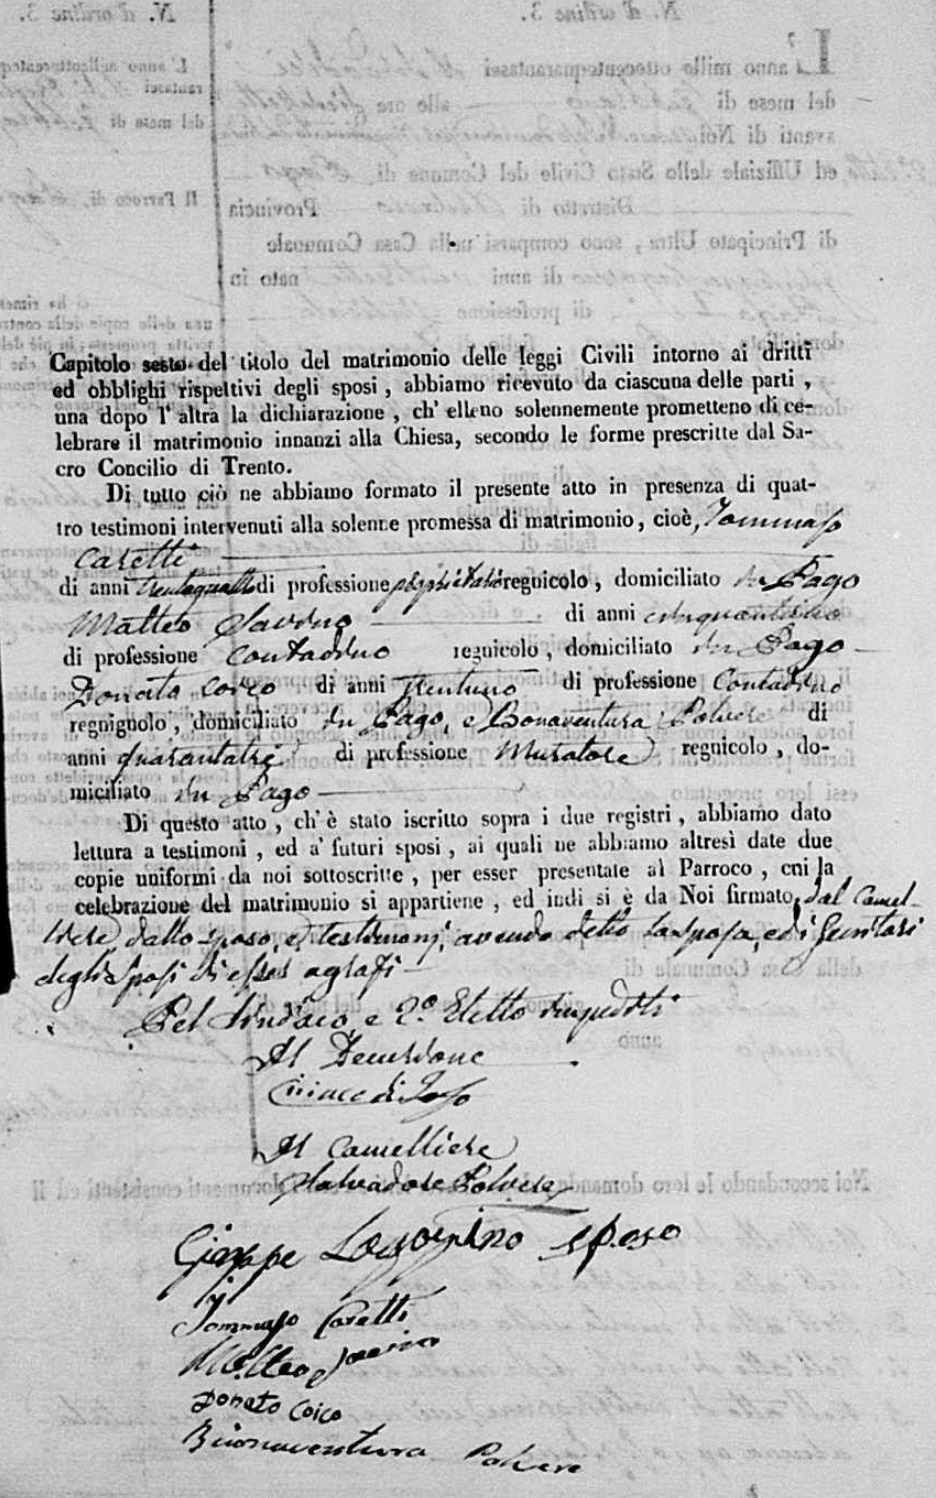 Capitolo sesto del titolo del matrimonio delle leggi Civili intorno ai dritti
ed obblighi rispettivi degli sposi, abbiamo ricevuto da ciascuna delle parti,
una dopo l'altra la dichiarazione, ch'elleno solennemente promettono di ce-
lebrare il matrimonio innanzi alla Chiesa, secondo le forme prescritte dal Sa-
cro Concilio di Trento.
Di tutto ciò ne abbiamo formato il presente atto in presenza di quat-
tro testimoni intervenuti alla solenne promessa di matrimonio, cioè, Tommaso
Caretti
di anni trentaquattro di professione proprietario regnicolo, domiciliato in Pago
Matteo Saveno di anni
di professione contadino regnicolo, domiciliato in Pago
Donato Coico di anni trentuno di professione Contadino
regnignolo, domiciliato in Pago, e Bonaventura Polvere di
anni quarantatré di professione Muratore regnicolo, do-
miciliato in Pago
Di questo atto, ch'è stato iscritto sopra i due registri, abbiamo dato
lettura a testimoni, ed a' futuri sposi, ai quali ne abbiamo altresì date due
copie uniformi da noi sottoscritte, per esser presentate al Parroco, cui la
celebrazione del matrimonio si appartiene, ed indi si è da Noi firmato, dal Cancel-
liere, dallo sposo, e testimonj, avendo detto la sposa, ed i Genitori
degli Sposi di esser
Pel Sindaco, e 2.o Eletto impediti
Il Decurione
Il Cancelliere
Salvadore Polvere
Giuseppe sposo
Tommaso Caretti
Matteo
Donato Coico
Buonaventura Polvere